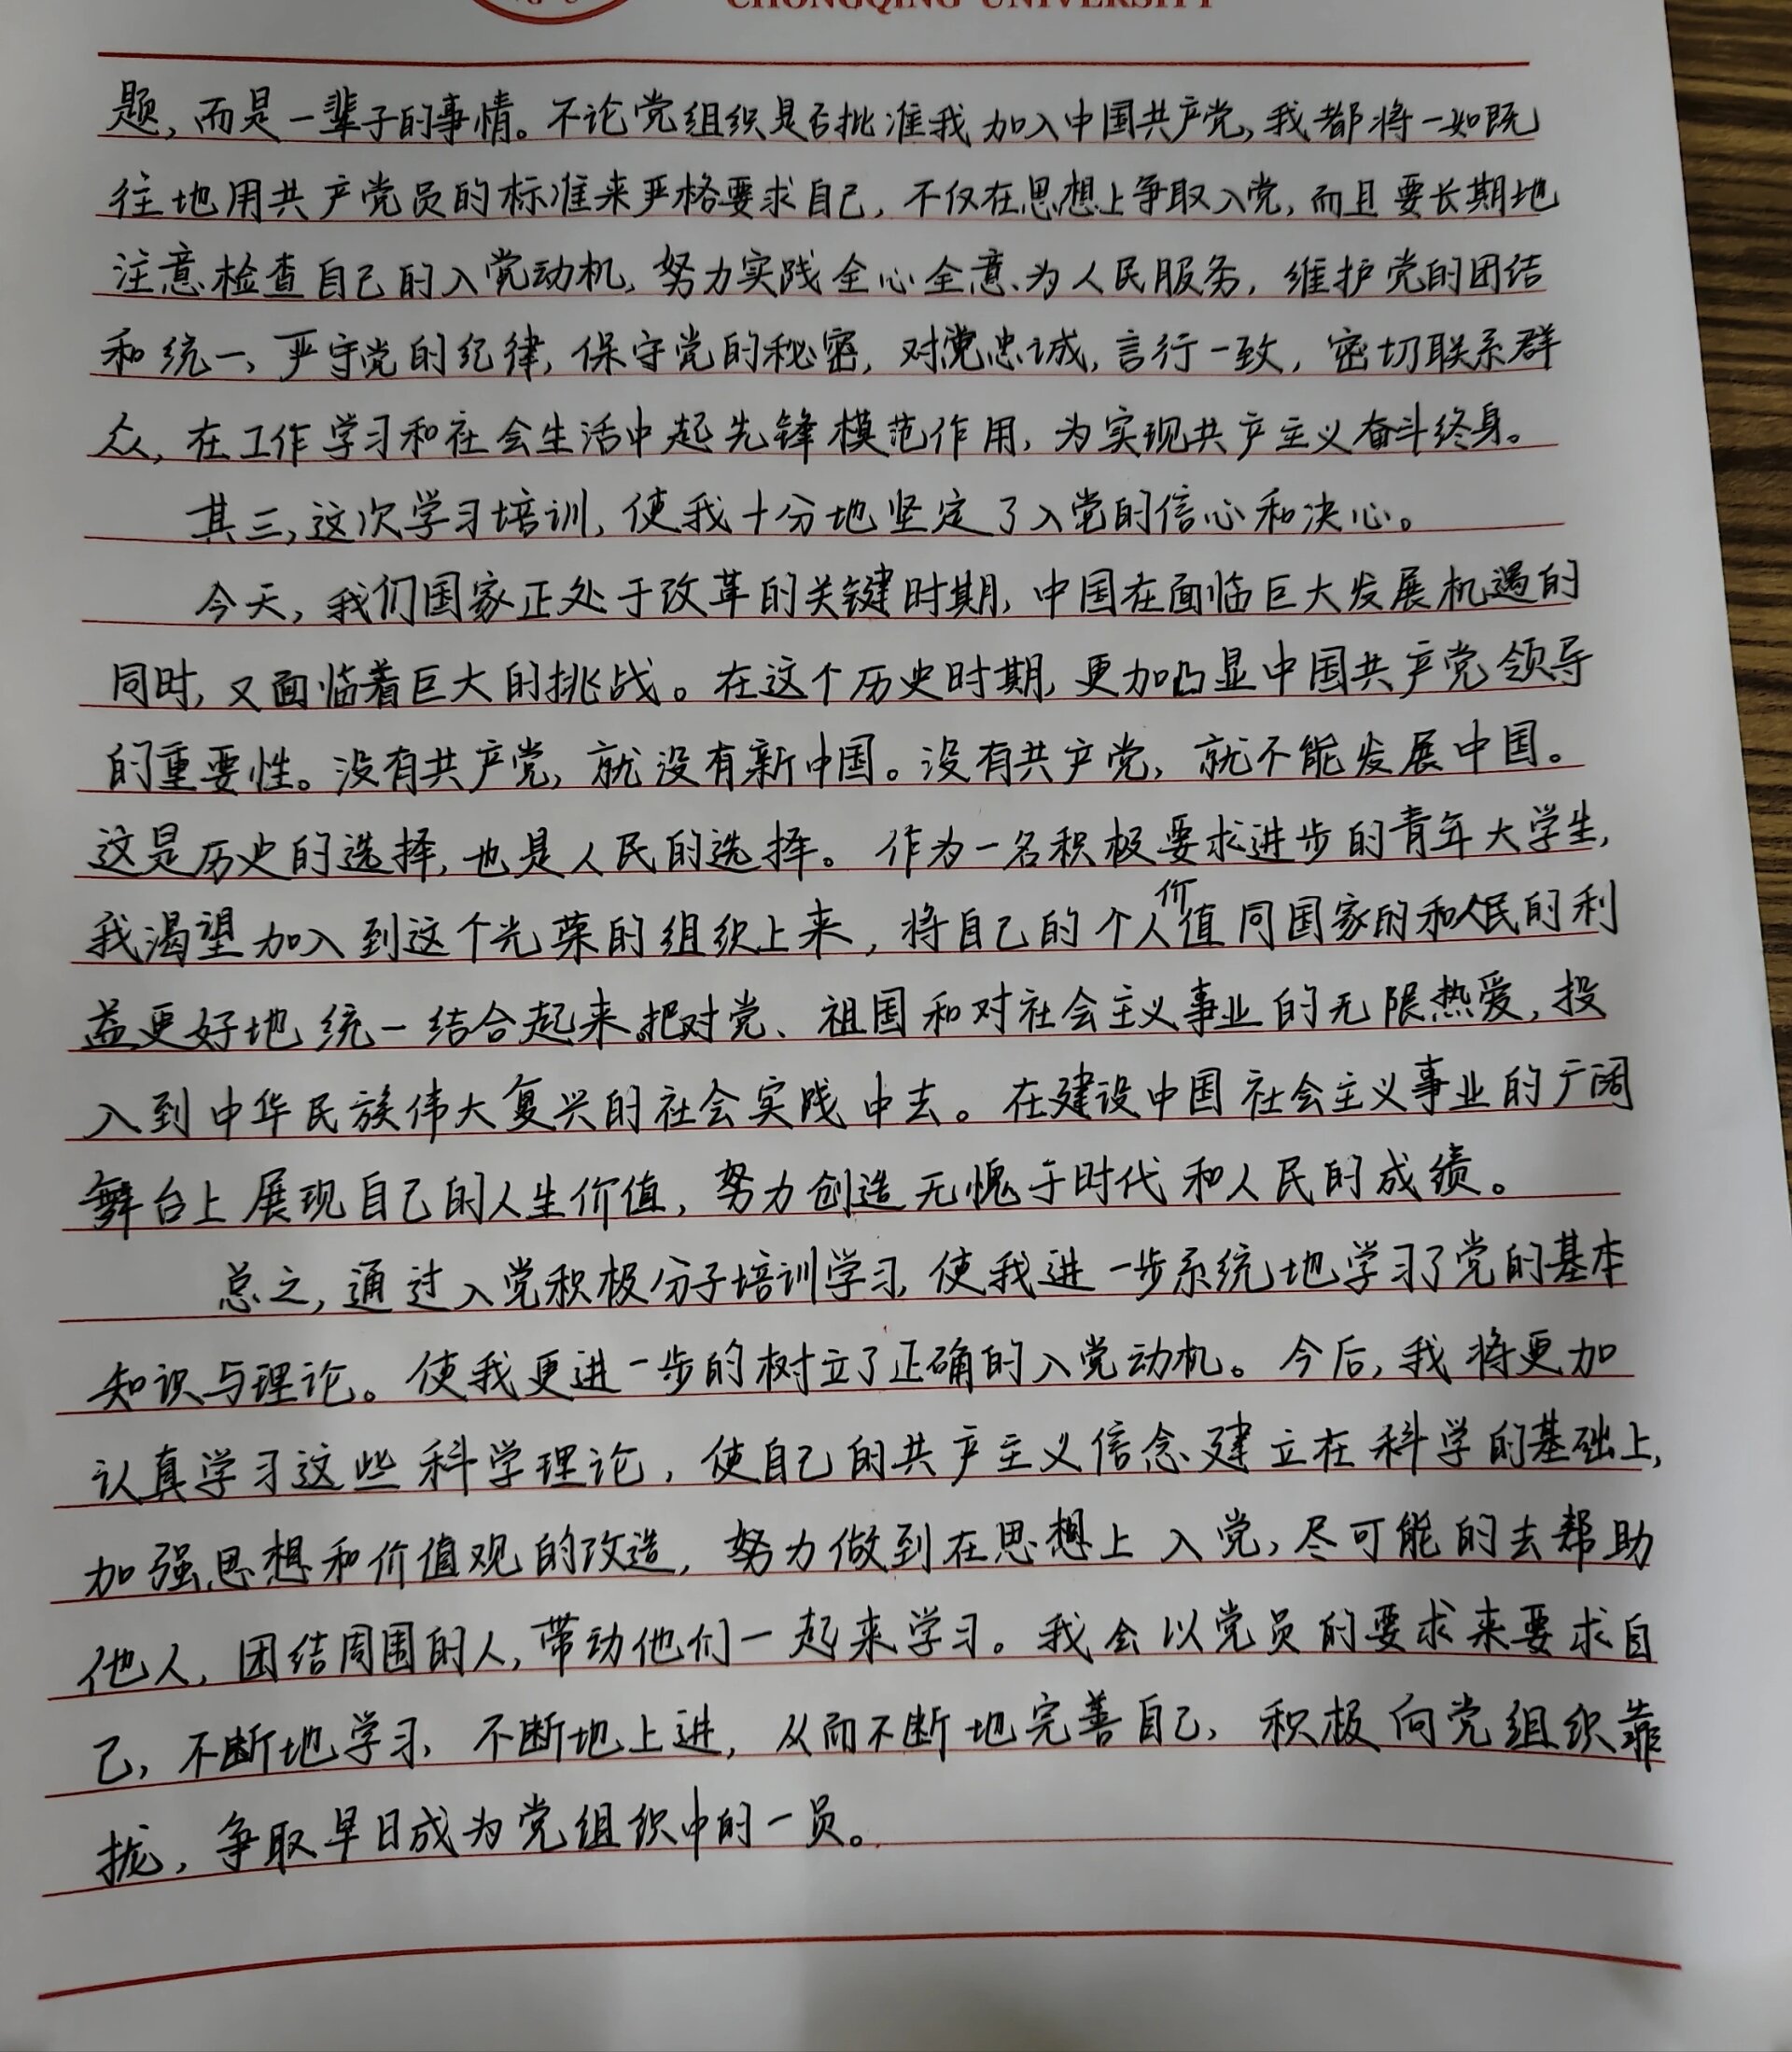 CHONGQING UNIVERSITY
题,而是一辈子的事情。不论党组织是否批准我加入中国共产党,我都将一如既
往地用共产党员的标准来严格要求自己,不仅在思想上争取入党,而且要长期地
注意检查自己的入党动机,努力实践全心全意为人民服务,维护党的团结
和统一、严守党的纪律,保守党的秘密,对党忠诚,言行一致,密切联系群
众,在工作学习和社会生活中起先锋模范作用,为实现共产主义奋斗终身。
其三,这次学习培训,使我十分地坚定了入党的信心和决心。
今天,我们国家正处于改革的关键时期,中国在面临巨大发展机遇的
同时,又面临着巨大的挑战。在这个历史时期,更加凸显中国共产党领导
的重要性。没有共产党,就没有新中国。没有共产党,就不能发展中国。
这是历史的选择,也是人民的选择。作为一名积极要求进步的青年大学生,
我渴望加入到这个光荣的组织上来,将自己的个人价值同国家的和人民的利
益更好地统一结合起来。把对党、祖国和对社会主义事业的无限热爱,投
入到中华民族伟大复兴的社会实践中去。在建设中国社会主义事业的广阔
舞台上展现自己的人生价值,努力创造无愧于时代和人民的成绩。
总之,通过入党积极分子培训学习,使我进一步系统地学习了党的基本
知识与理论。使我更进一步的树立了正确的入党动机。今后,我将更加
认真学习这些科学理论,使自己的共产主义信念建立在科学的基础上,
加强思想和价值观的改造,努力做到在思想上入党,尽可能的去帮助
他人,团结周围的人,带动他们一起来学习。我会以党员的要求来要求自
己,不断地学习,不断地上进,从而不断地完善自己,积极向党组织靠
拢,争取早日成为党组织中的一员。